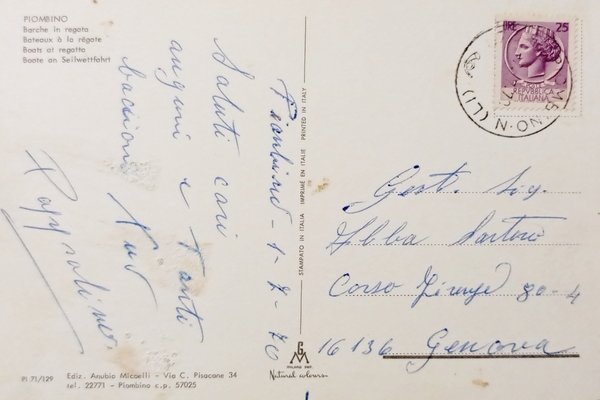 PIOMBINO
Barche in regata
Bateaux à la régate
Boats at regatta
Boote an Seilwettfahrt
Piombino - 1-7-70
Saluti cari
auguri e tanti
bacioni
STAMPATO IN ITALIA IMPRIMÉ EN ITALIE PRINTED IN ITALY
LIRE 25
REPVBBLICA
ITALIANA
Gent. Sig.
Sartori
Corso Firenze 80-4
16136 Genova
GM
Natural colours
PI 71/129
Ediz. Anubio Miccelli - Via C. Pisacane 34
tel. 22771 - Piombino c.p. 57025